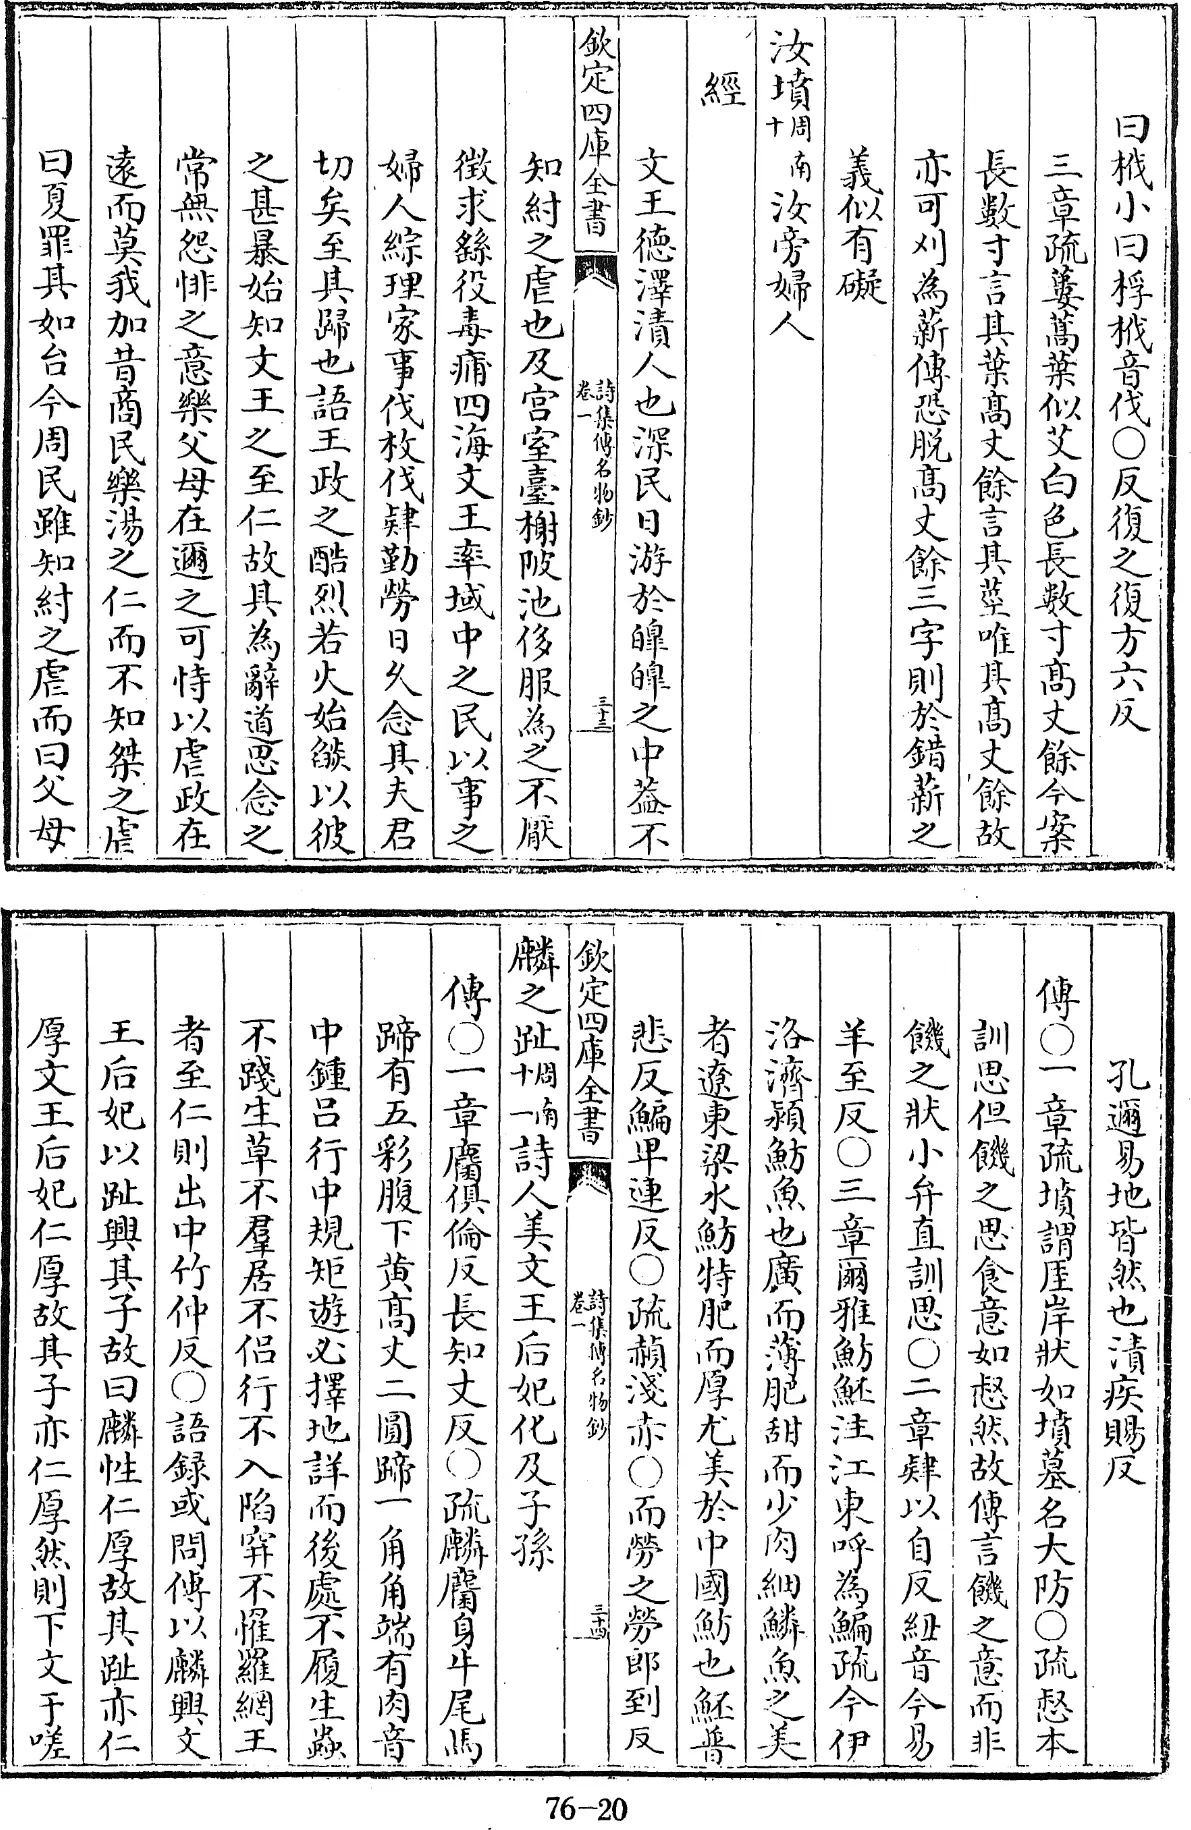 曰栰小曰桴栰音伐○反復之復方六反
三章疏蔞蒿葉似艾白色長數寸髙丈餘今案
長數寸言其葉髙丈餘言其莖唯其髙丈餘故
亦可刈為薪傳恐脱髙丈餘三字則於錯薪之
義似有礙
汝墳周南十汝旁婦人
經
文王德澤漬人也深民日游於皥皥之中葢不
欽定四庫全書
詩集傳名物鈔
卷一
三十三
知紂之虐也及宫室臺榭陂池侈服為之不厭
徴求繇役毒痡四海文王率域中之民以事之
婦人綜理家事伐枚伐肄勤勞日久念其夫君
切矣至其歸也語王政之酷烈若火始燄以彼
之甚暴始知文王之至仁故其為辭道思念之
常無怨悱之意樂父母在邇之可恃以虐政在
遠而莫我加昔商民樂湯之仁而不知桀之虐
曰夏罪其如台今周民雖知紂之虐而曰父母
孔邇易地皆然也漬疾賜反
傳○一章疏墳謂厓岸狀如墳墓名大防○疏惄本
訓思但饑之思食意如惄然故傳言饑之意而非
饑之狀小弁直訓思○二章肄以自反紐音今易
羊至反○三章爾雅魴魾注江東呼為鯿疏今伊
洛濟潁魴魚也廣而薄肥甜而少肉細鱗魚之美
者遼東梁水魴特肥而厚尤美於中國魴也魾普
悲反鯿卑連反○疏赬淺赤○而勞之勞郎到反
欽定四庫全書
詩集傳名物鈔
卷一
三十四
麟之趾周南十一詩人美文王后妃化及子孫
傳○一章麕俱倫反長知丈反○疏麟麕身牛尾馬
蹄有五彩腹下黄髙丈二圓蹄一角角端有肉音
中鍾吕行中規矩遊必擇地詳而後處不履生蟲
不踐生草不羣居不侣行不入陷穽不罹羅網王
者至仁則出中竹仲反○語録或問傳以麟興文
王后妃以趾興其子故曰麟性仁厚故其趾亦仁
厚文王后妃仁厚故其子亦仁厚然則下文于嗟
76-20